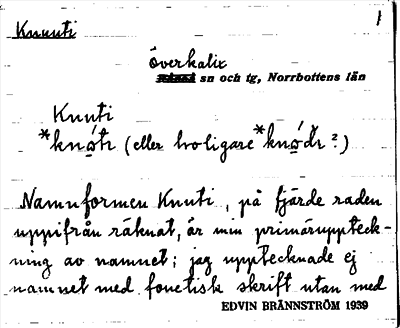 Knuuti
1
överkalix
sn och tg, Norrbottens län
Knuti
*knọ́tı (eller troligare *knọ́dı̌ ?)
Namnformen Knuti, på fjärde raden
uppifrån räknat, är min primäruppteck-
ning av namnet; jag upptecknade ej
namnet med fonetisk skrift utan med
EDVIN BRÄNNSTRÖM 1939